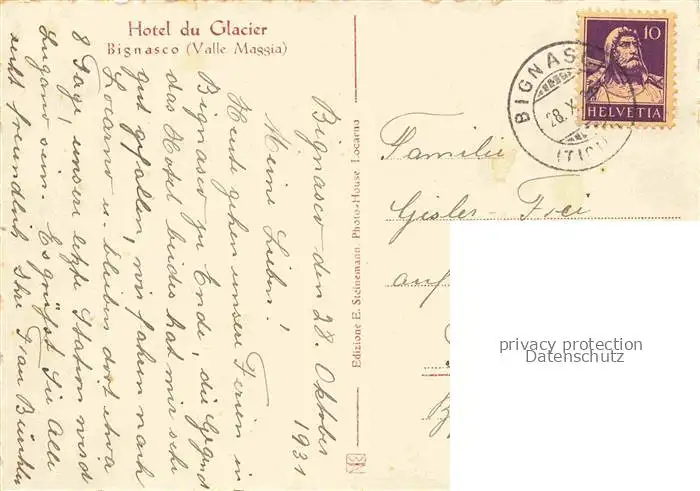 Hotel du Glacier
Bignasco (Valle Maggia)
Bignasco den 28. Oktober
1931
Meine Lieben!
Heute gehen unsere Ferien in
Bignasco zu Ende, die Gegend
das Hotel beides hat mir sehr
gut gefallen, wir fahren nach
Locarno u. bleiben dort etwa
8 Tage, unsere letzte Station wird
Lugano sein. Es grüsst Sie Alle
recht freundlich Ihre Frau
Edizione E. Steinemann, Photo-House, Locarno
10
HELVETIA
BIGNASCO
28. X.
(TICINO)
Familie
Gisler-Frei
auf
privacy protection
Datenschutz